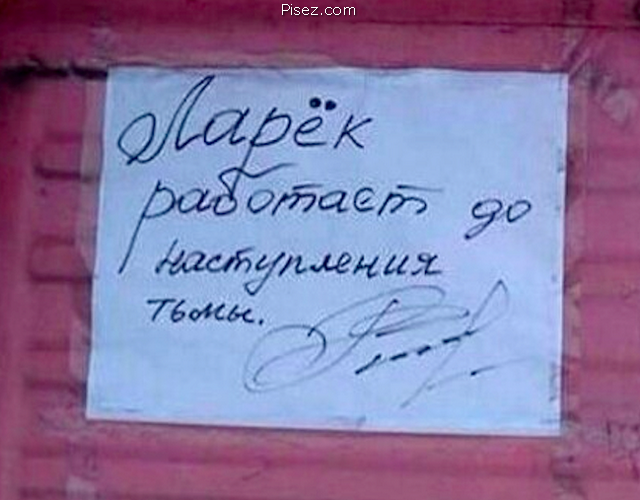 Pisez.com
Ларёк
работает до
наступления
тьмы.